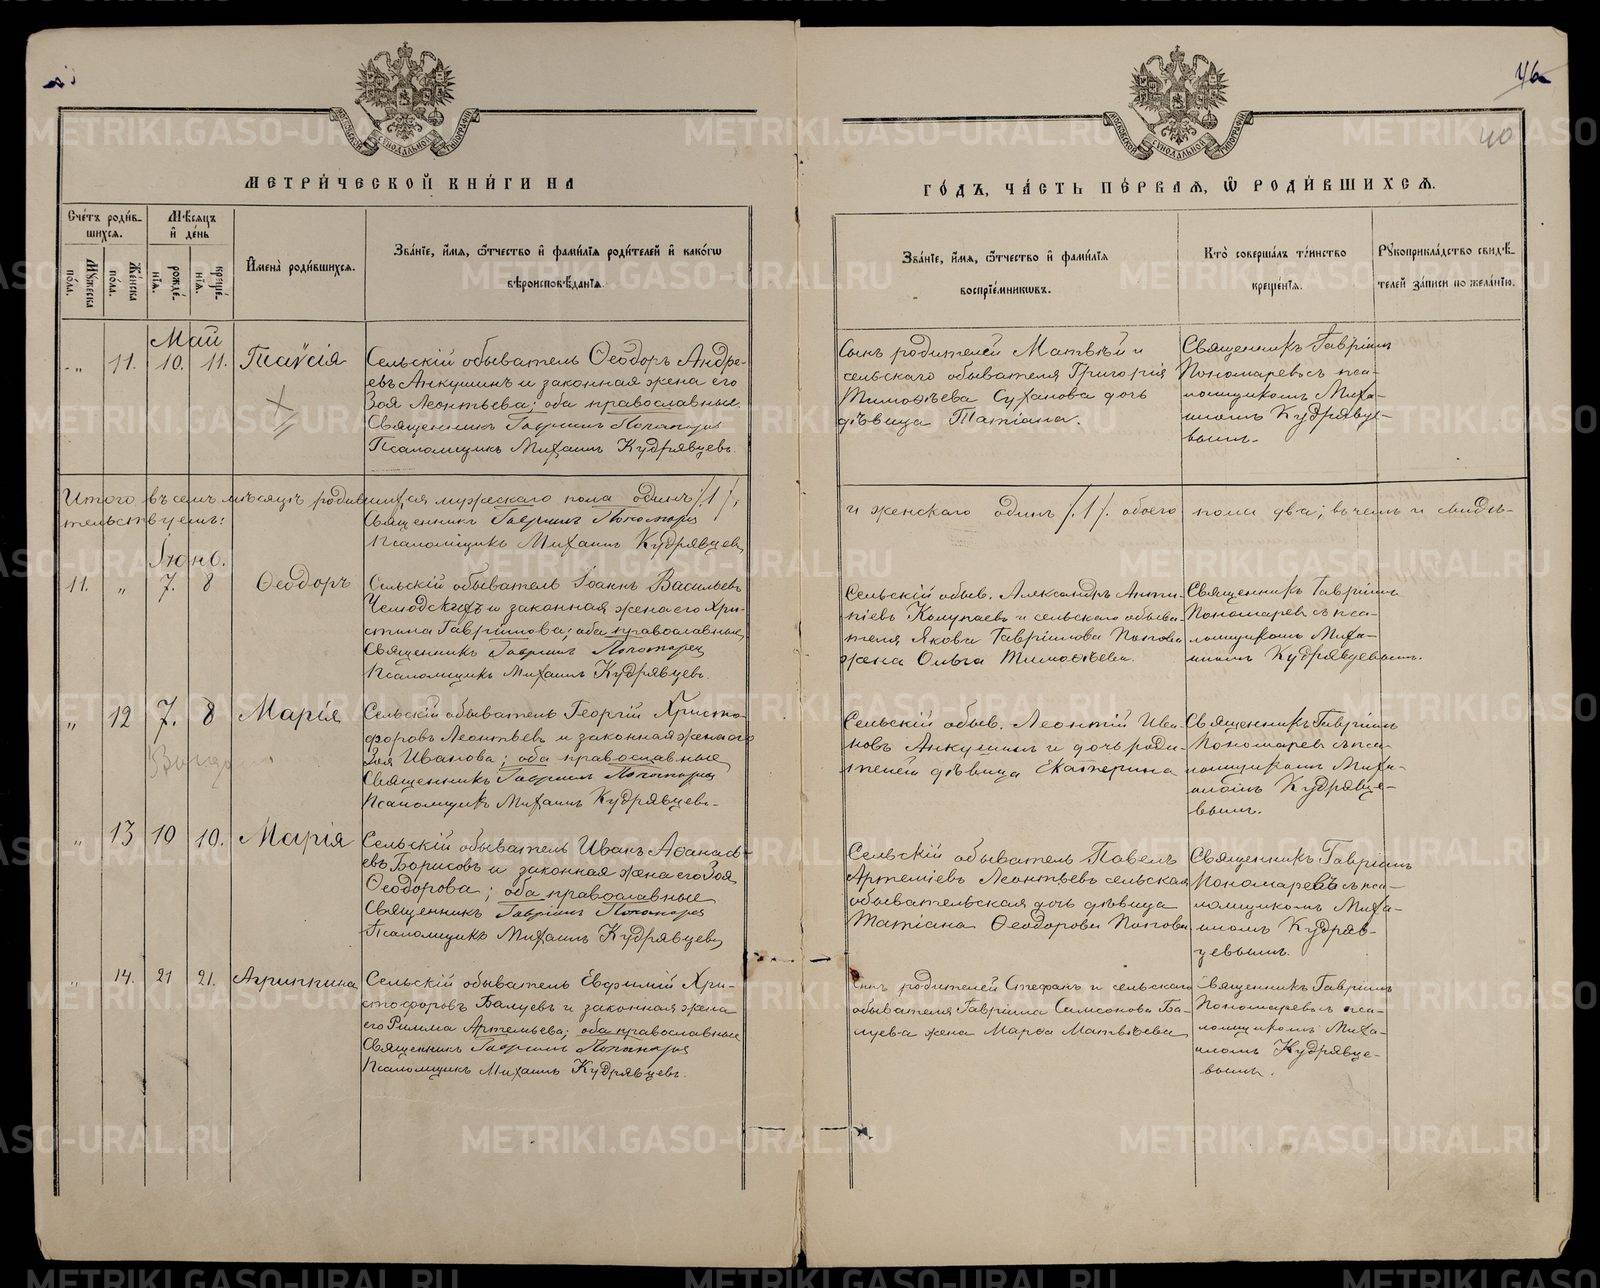 46
40
МЕТРИЧЕСКОЙ КНИГИ НА
ГОДЪ, ЧАСТЬ ПЕРВАЯ, Ѿ РОДИВШИХСЯ.
Счетъ родившихся.
Мужеска пола.
Женска пола.
Мѣсяцъ и день
рожденія.
крещенія.
Имена родившихся.
Званіе, имя, ѿтчество и фамилія родителей и какогѡ
вѣроисповѣданія.
Званіе, имя, ѿтчество и фамилія
воспріемникѡвъ.
Кто совершалъ таинство
крещенія.
Рукоприкладство свидѣ-
телей записи по желанію.
Май
„ 11. 10. 11. Таисія
Сельскій обыватель Ѳеодоръ Андре-
евъ Анкушинъ и законная жена его
Зоя Леонтьева; оба православные.
Священникъ Гавріилъ Пономаревъ
Псаломщикъ Михаилъ Кудрявцевъ.
Сынъ родителей Матвѣй и
сельскаго обывателя Григорія
Тимоѳеева Суханова дочь
дѣвица Татіана.
Священникъ Гавріилъ
Пономаревъ съ пса-
ломщикомъ Миха-
иломъ Кудрявце-
вымъ.
Итого въ семъ мѣсяцѣ родившихся мужескаго пола одинъ /1/,
и женскаго одинъ /1/. обоего пола два; въ чемъ и свидѣ-
тельствуемъ:
Священникъ Гавріилъ Пономаревъ
Псаломщикъ Михаилъ Кудрявцевъ
Іюнь.
11. „ 7. 8 Ѳеодоръ
Сельскій обыватель Іоаннъ Васильевъ
и законная жена его Хри-
стина Гавріилова; оба православные
Священникъ Гавріилъ Пономаревъ
Псаломщикъ Михаилъ Кудрявцевъ.
Сельскій обыв. Александръ Анти-
піевъ Колупаевъ и сельскаго обыва-
теля Якова Гавріилова Попова
жена Ольга Тимоѳеева.
Священникъ Гавріилъ
Пономаревъ съ пса-
ломщикомъ Миха-
иломъ Кудрявцевымъ.
„ 12 7. 8 Марія
Сельскій обыватель Георгій Христо-
форовъ Леонтьевъ и законная жена его
Зоя Иванова; оба православные
Священникъ Гавріилъ Пономаревъ
Псаломщикъ Михаилъ Кудрявцевъ.
Сельскій обыв. Леонтій Ива-
новъ Анкушинъ и дочь роди-
телей дѣвица Екатерина
Священникъ Гавріилъ
Пономаревъ съ пса-
ломщикомъ Миха-
иломъ Кудрявце-
вымъ.
„ 13 10 10. Марія
Сельскій обыватель Иванъ Аѳанась-
евъ Борисовъ и законная жена его Зоя
Ѳеодорова; оба православные
Священникъ Гавріилъ Пономаревъ
Псаломщикъ Михаилъ Кудрявцевъ
Сельскій обыватель Павелъ
Артеміевъ Леонтьевъ сельская
обывательская дочь дѣвица
Татіана Ѳеодорова Попова
Священникъ Гавріилъ
Пономаревъ съ пса-
ломщикомъ Миха-
иломъ Кудряв-
цевымъ.
„ 14. 21 21. Агриппина
Сельскій обыватель Евфимій Хри-
стофоровъ Балуевъ и законная жена
его Римма Артемьева; оба православные
Священникъ Гавріилъ Пономаревъ
Псаломщикъ Михаилъ Кудрявцевъ.
Сынъ родителей Стефанъ и сельскаго
обывателя Гавріила Самсонова Ба-
луева жена Марѳа Матвѣева
Священникъ Гавріилъ
Пономаревъ съ пса-
ломщикомъ Миха-
иломъ Кудрявце-
вымъ.
METRIKI.GASO-URAL.RU